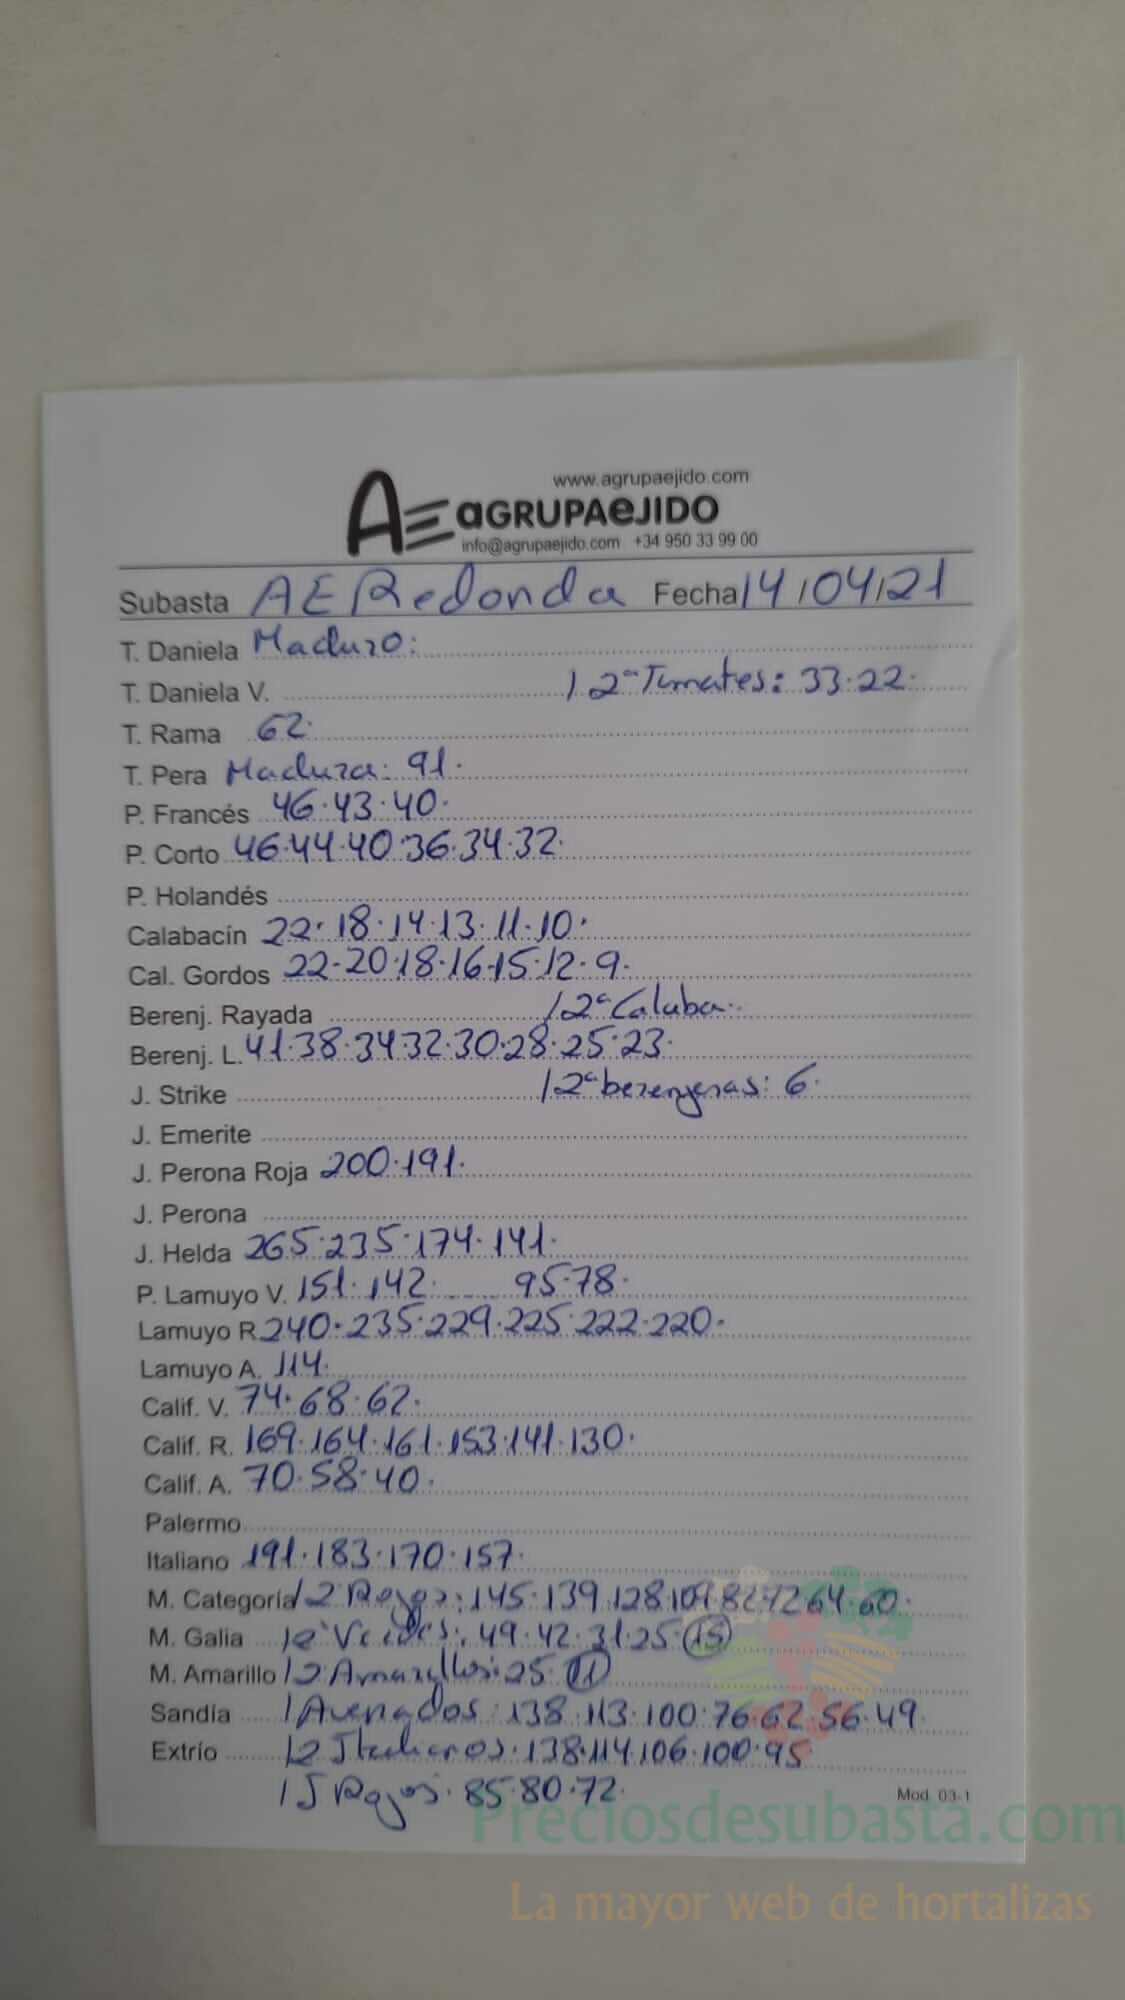 www.agrupaejido.com
AE aGRUPAeJIDO
info@agrupaejido.com +34 950 33 99 00
Subasta AE Redonda Fecha 14/04/21
T. Daniela Maduro:
T. Daniela V. / 2ª Tomates: 33·22·
T. Rama 62·
T. Pera Madura: 91·
P. Francés 46·43·40·
P. Corto 46·44·40·36·34·32·
P. Holandés
Calabacín 22·18·14·13·11·10·
Cal. Gordos 22·20·18·16·15·12·9·
Berenj. Rayada / 2ª Calaba:
Berenj. L. 41·38·34·32·30·28·25·23·
J. Strike / 2ª berenjenas: 6·
J. Emerite
J. Perona Roja 200·191·
J. Perona
J. Helda 265·235·174·141·
P. Lamuyo V. 151·142· ---- 95·78·
Lamuyo R 240·235·229·225·222·220·
Lamuyo A. 114·
Calif. V. 74·68·62·
Calif. R. 169·164·161·153·141·130·
Calif. A. 70·58·40·
Palermo
Italiano 191·183·170·157·
M. Categoría / 2ª Rojos: 145·139·128·109·82·72·64·60·
M. Galia / 2ª Verdes: 49·42·31·25·(15)
M. Amarillo / 2ª Amarillos: 25·(11)
Sandía / Asenados: 138·113·100·76·62·56·49·
Extrío / 2 Italianos: 138·114·106·100·95
/ J Rojos: 85·80·72·
Mod. 03-1
Preciosdesubasta.com
La mayor web de hortalizas